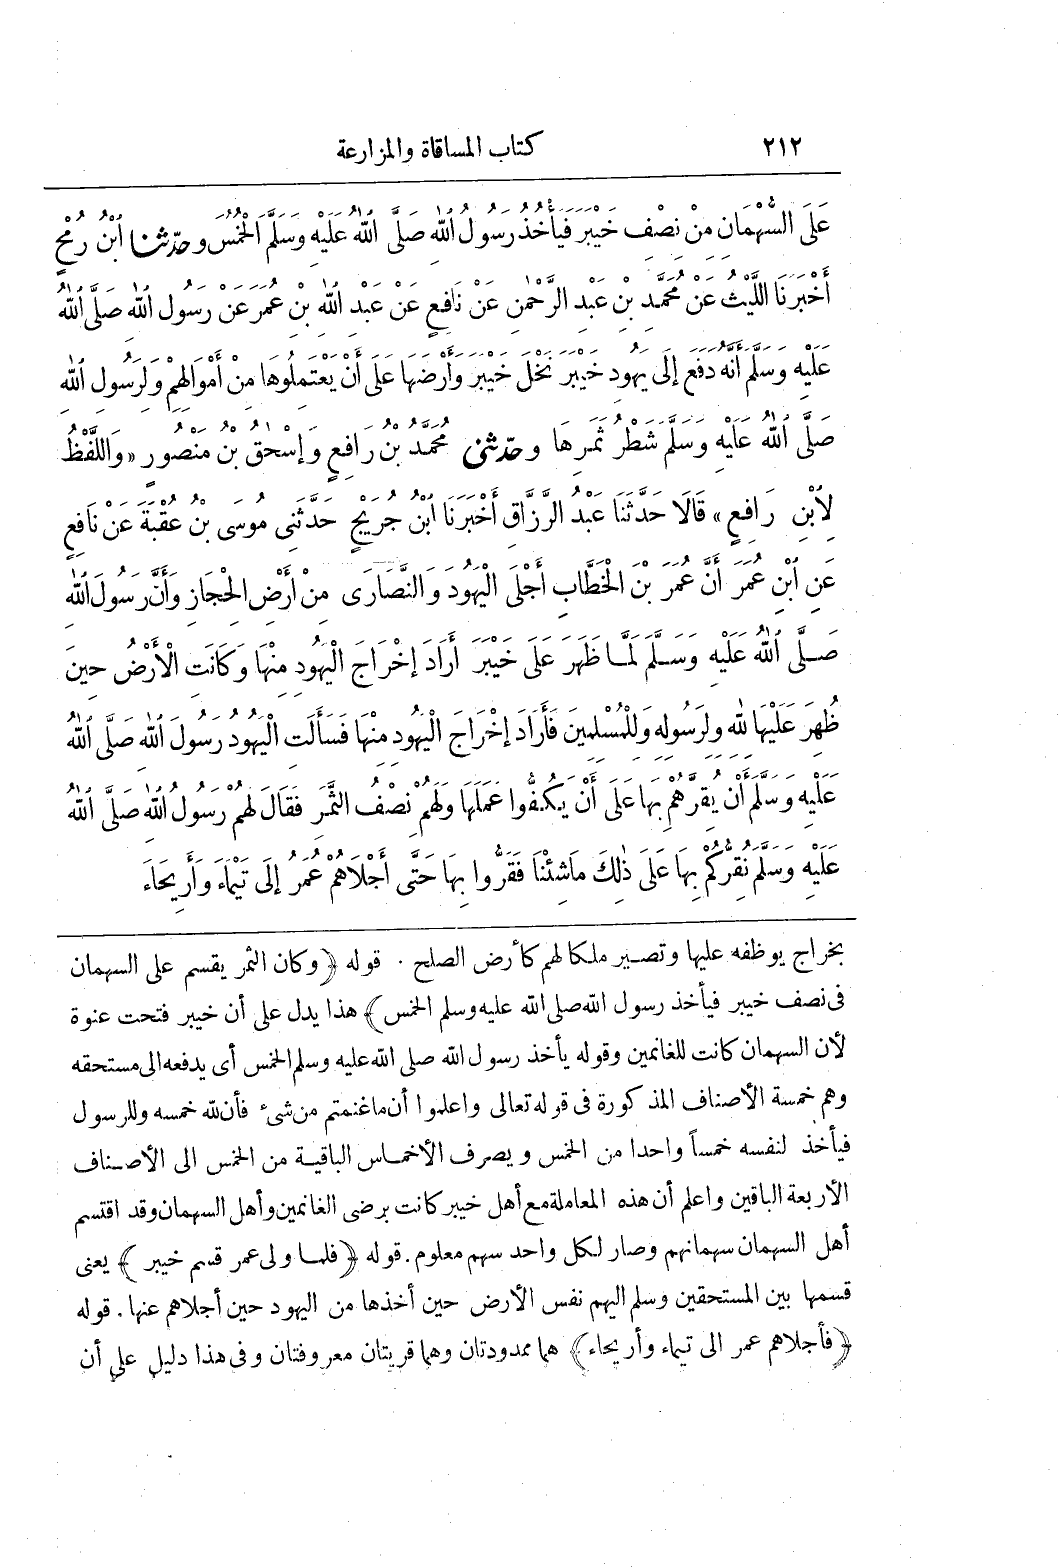 ٢١٢ كتاب المساقاة والمزارعة
عَلَى السُّهْمَانِ مِنْ نِصْفِ خَيْبَرَ فَيَأْخُذُ رَسُولُ اللّٰهِ صَلَّى اللّٰهُ عَلَيْهِ وَسَلَّمَ الْخُمُسَ وحَدّثنا ابْنُ رُمْحٍ
أَخْبَرَنَا اللَّيْثُ عَنْ مُحَمَّدِ بْنِ عَبْدِ الرَّحْمٰنِ عَنْ نَافِعٍ عَنْ عَبْدِ اللّٰهِ بْنِ عُمَرَ عَنْ رَسُولِ اللّٰهِ صَلَّى اللّٰهُ
عَلَيْهِ وَسَلَّمَ أَنَّهُ دَفَعَ إِلَى يَهُودِ خَيْبَرَ نَخْلَ خَيْبَرَ وَأَرْضَهَا عَلَى أَنْ يَعْتَمِلُوهَا مِنْ أَمْوَالِهِمْ وَلِرَسُولِ اللّٰهِ
صَلَّى اللّٰهُ عَلَيْهِ وَسَلَّمَ شَطْرُ ثَمَرِهَا وحدّثنى مُحَمَّدُ بْنُ رَافِعٍ وَإِسْحٰقُ بْنُ مَنْصُورٍ «وَاللَّفْظُ
لِابْنِ رَافِعٍ» قَالَا حَدَّثَنَا عَبْدُ الرَّزَّاقِ أَخْبَرَنَا ابْنُ جُرَيْجٍ حَدَّثَنِى مُوسَى بْنُ عُقْبَةَ عَنْ نَافِعٍ
عَنِ ابْنِ عُمَرَ أَنَّ عُمَرَ بْنَ الْخَطَّابِ أَجْلَى الْيَهُودَ وَالنَّصَارَى مِنْ أَرْضِ الْحِجَازِ وَأَنَّ رَسُولَ اللّٰهِ
صَلَّى اللّٰهُ عَلَيْهِ وَسَلَّمَ لَمَّا ظَهَرَ عَلَى خَيْبَرَ أَرَادَ إِخْرَاجَ الْيَهُودِ مِنْهَا وَكَانَتِ الْأَرْضُ حِينَ
ظُهِرَ عَلَيْهَا لِلّٰهِ وَلِرَسُولِهِ وَلِلْمُسْلِمِينَ فَأَرَادَ إِخْرَاجَ الْيَهُودِ مِنْهَا فَسَأَلَتِ الْيَهُودُ رَسُولَ اللّٰهِ صَلَّى اللّٰهُ
عَلَيْهِ وَسَلَّمَ أَنْ يُقِرَّهُمْ بِهَا عَلَى أَنْ يَكْفُوا عَمَلَهَا وَلَهُمْ نِصْفُ الثَّمَرِ فَقَالَ لَهُمْ رَسُولُ اللّٰهِ صَلَّى اللّٰهُ
عَلَيْهِ وَسَلَّمَ نُقِرُّكُمْ بِهَا عَلَى ذٰلِكَ مَا شِئْنَا فَقَرُّوا بِهَا حَتَّى أَجْلَاهُمْ عُمَرُ إِلَى تَيْمَاءَ وَأَرِيحَاءَ
بخراج يوظفه عليها وتصير ملكا لهم كأرض الصلح . قوله ﴿وكان الثمر يقسم على السهمان
فى نصف خيبر فيأخذ رسول الله صلى الله عليه وسلم الخمس﴾ هذا يدل على أن خيبر فتحت عنوة
لأن السهمان كانت للغانمين وقوله يأخذ رسول الله صلى الله عليه وسلم الخمس أى يدفعه الى مستحقه
وهم خمسة الأصناف المذكورة فى قوله تعالى واعلموا أن ما غنمتم من شىء فأن لله خمسه وللرسول
فيأخذ لنفسه خمساً واحدا من الخمس ويصرف الأخماس الباقية من الخمس الى الأصناف
الأربعة الباقين واعلم أن هذه المعاملة مع أهل خيبر كانت برضى الغانمين وأهل السهمان وقد اقتسم
أهل السهمان سهمانهم وصار لكل واحد سهم معلوم . قوله ﴿فلما ولى عمر قسم خيبر﴾ يعنى
قسمها بين المستحقين وسلم اليهم نفس الأرض حين أخذها من اليهود حين أجلاهم عنها . قوله
﴿فأجلاهم عمر الى تيماء وأريحاء﴾ هما ممدودتان وهما قريتان معروفتان وفى هذا دليل على أن